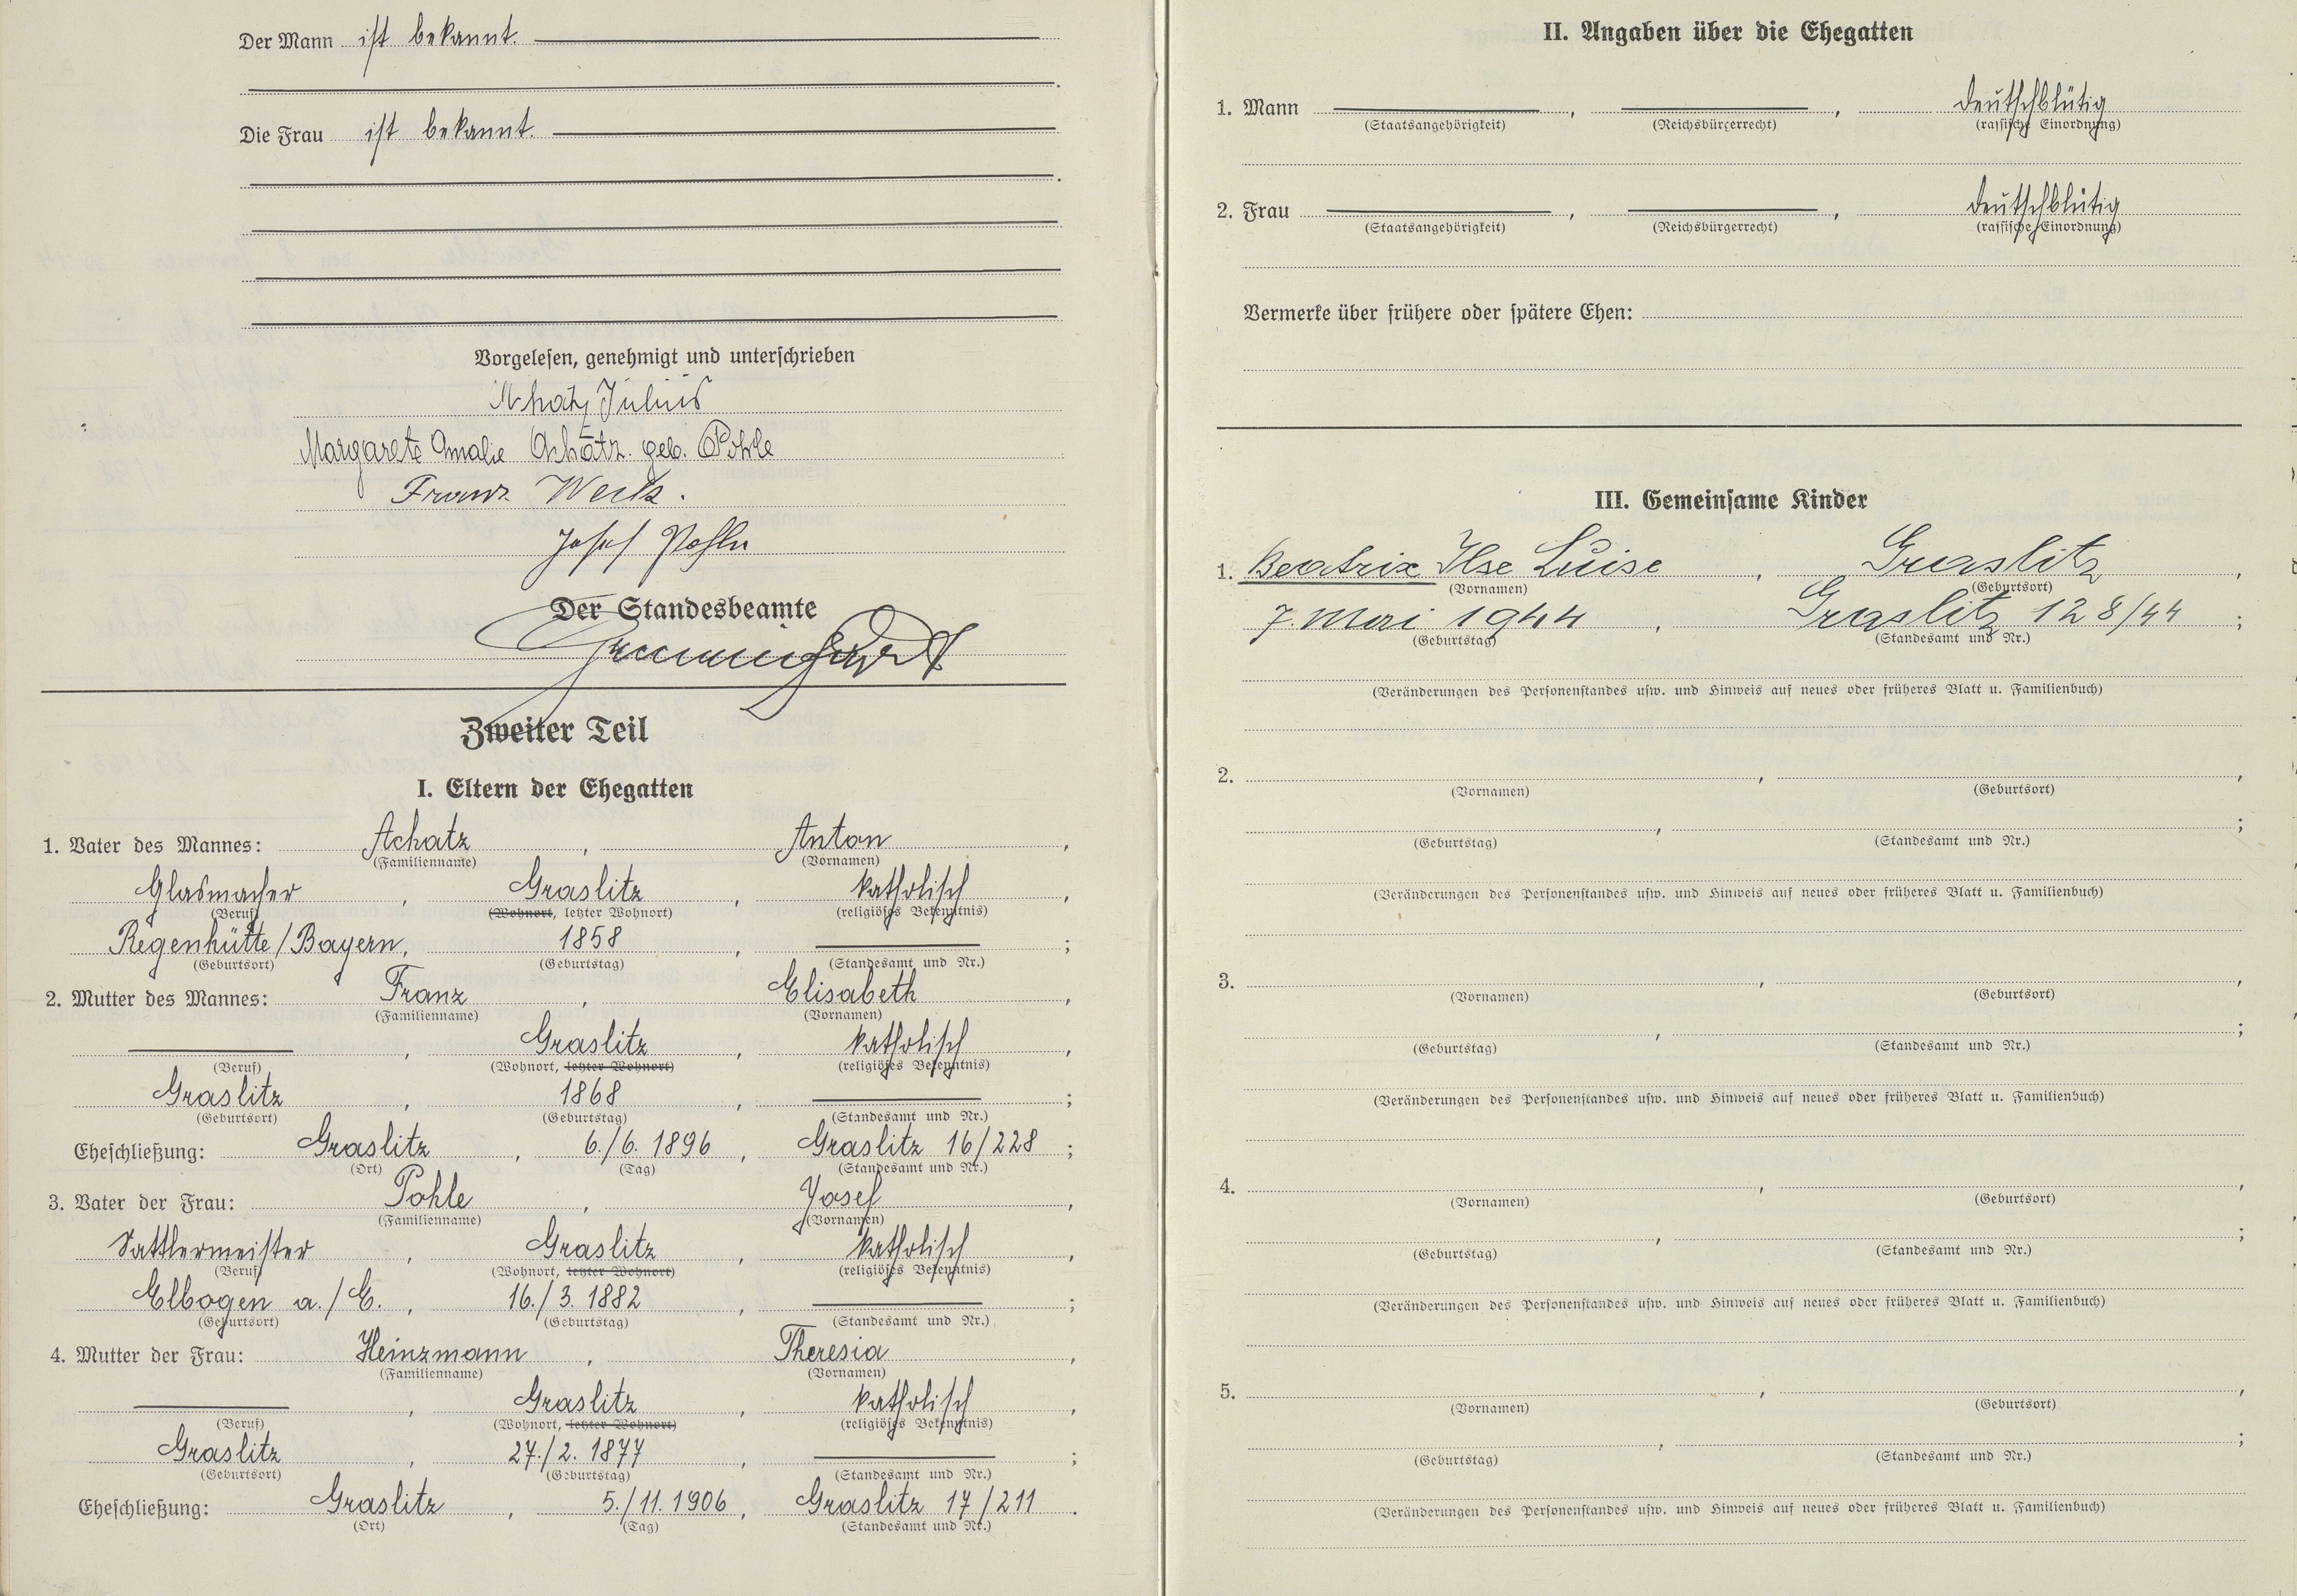 Der Mann ist bekannt.
Die Frau ist bekannt.
Vorgelesen, genehmigt und unterschrieben
Achatz Julius
Margarete Amalie Achatz geb. Pohle
Franz
Josef Pohle
Der Standesbeamte
Zweiter Teil
I. Eltern der Ehegatten
1. Vater des Mannes: Achatz, Anton,
(Familienname) (Vornamen)
Glasmacher, Graslitz, katholisch,
(Beruf) (Wohnort, letzter Wohnort) (religiöses Bekenntnis)
Regenhütte/Bayern, 1858, ;
(Geburtsort) (Geburtstag) (Standesamt und Nr.)
2. Mutter des Mannes: Franz, Elisabeth,
(Familienname) (Vornamen)
, Graslitz, katholisch,
(Beruf) (Wohnort, letzter Wohnort) (religiöses Bekenntnis)
Graslitz, 1868, ;
(Geburtsort) (Geburtstag) (Standesamt und Nr.)
Eheschließung: Graslitz, 6./6. 1896, Graslitz 16/228;
(Ort) (Tag) (Standesamt und Nr.)
3. Vater der Frau: Pohle, Josef,
(Familienname) (Vornamen)
Sattlermeister, Graslitz, katholisch,
(Beruf) (Wohnort, letzter Wohnort) (religiöses Bekenntnis)
Elbogen a./E., 16./3. 1882, ;
(Geburtsort) (Geburtstag) (Standesamt und Nr.)
4. Mutter der Frau: Heinzmann, Theresia,
(Familienname) (Vornamen)
, Graslitz, katholisch,
(Beruf) (Wohnort, letzter Wohnort) (religiöses Bekenntnis)
Graslitz, 27./2. 1877, ;
(Geburtsort) (Geburtstag) (Standesamt und Nr.)
Eheschließung: Graslitz, 5./11. 1906, Graslitz 17/211.
(Ort) (Tag) (Standesamt und Nr.)
II. Angaben über die Ehegatten
1. Mann , , deutschblütig
(Staatsangehörigkeit) (Reichsbürgerrecht) (rassische Einordnung)
2. Frau , , deutschblütig
(Staatsangehörigkeit) (Reichsbürgerrecht) (rassische Einordnung)
Vermerke über frühere oder spätere Ehen:
III. Gemeinsame Kinder
1. Beatrix Ilse Luise, Graslitz,
(Vornamen) (Geburtsort)
7. Mai 1944, Graslitz 128/44;
(Geburtstag) (Standesamt und Nr.)
(Veränderungen des Personenstandes usw. und Hinweis auf neues oder früheres Blatt u. Familienbuch)
2. , ,
(Vornamen) (Geburtsort)
, ;
(Geburtstag) (Standesamt und Nr.)
(Veränderungen des Personenstandes usw. und Hinweis auf neues oder früheres Blatt u. Familienbuch)
3. , ,
(Vornamen) (Geburtsort)
, ;
(Geburtstag) (Standesamt und Nr.)
(Veränderungen des Personenstandes usw. und Hinweis auf neues oder früheres Blatt u. Familienbuch)
4. , ,
(Vornamen) (Geburtsort)
, ;
(Geburtstag) (Standesamt und Nr.)
(Veränderungen des Personenstandes usw. und Hinweis auf neues oder früheres Blatt u. Familienbuch)
5. , ,
(Vornamen) (Geburtsort)
, ;
(Geburtstag) (Standesamt und Nr.)
(Veränderungen des Personenstandes usw. und Hinweis auf neues oder früheres Blatt u. Familienbuch)